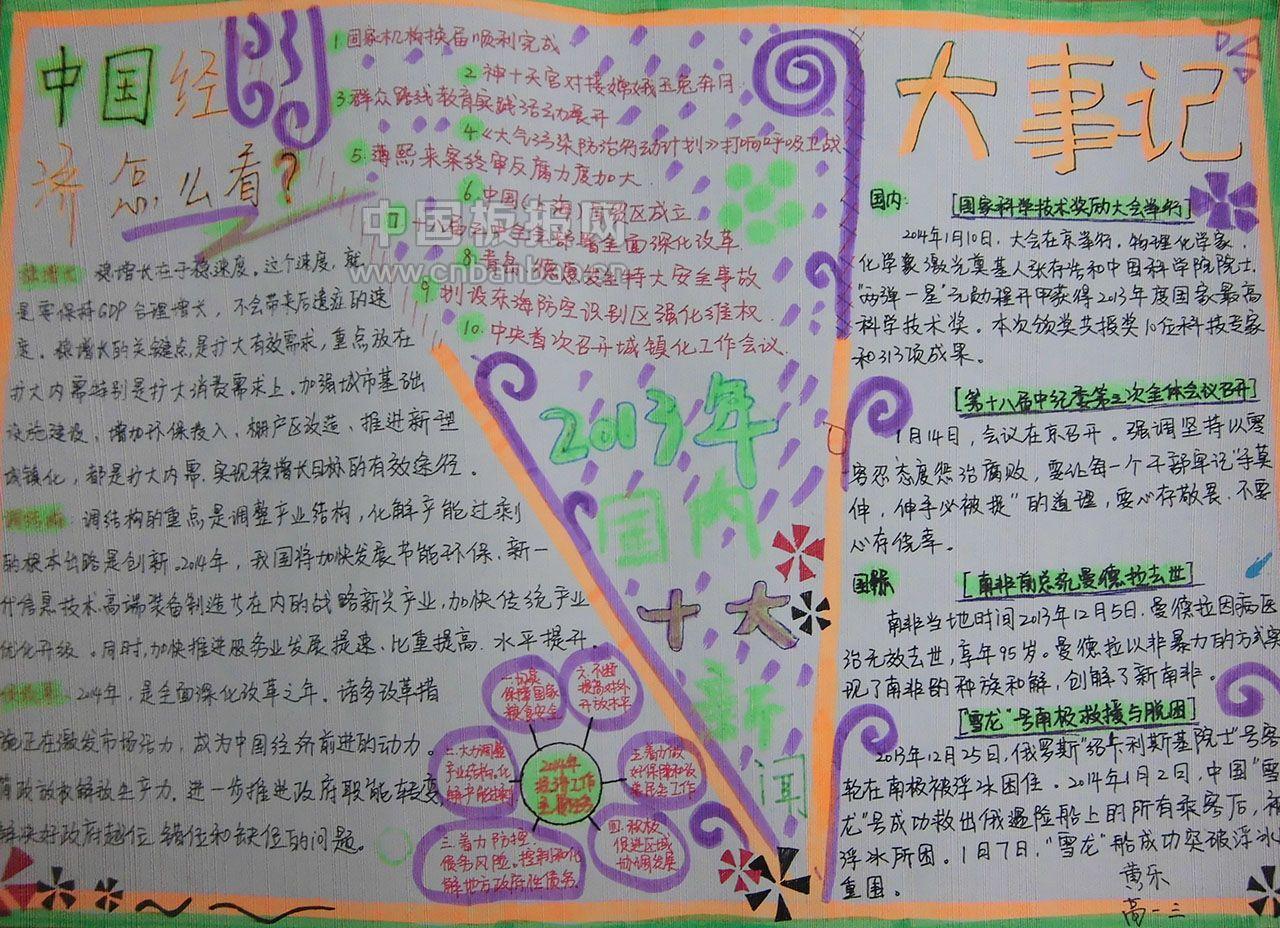 中国经
济怎么看？
稳增长：稳增长在于稳速度。这个速度，就
是要保持GDP合理增长，不会带来后遗症的速
度。稳增长的关键点是扩大有效需求，重点放在
扩大内需特别是扩大消费需求上。加强城市基础
设施建设，增加环保投入，棚户区改造，推进新型
城镇化，都是扩大内需.实现稳增长目标的有效途径。
调结构：调结构的重点是调整产业结构，化解产能过剩
的根本出路是创新。2014年，我国将加快发展节能环保、新一
代信息技术高端装备制造等在内的战略新兴产业，加快传统产业
优化升级。同时，加快推进服务业发展提速、比重提高、水平提升。
2014年，是全面深化改革之年。诸多改革措
施正在激发市场活力，成为中国经济前进的动力。
简政放权解放生产力，进一步推进政府职能转变，
解决好政府越位、错位和缺位的问题。
1.国家机构换届顺利完成
2.神十天宫对接嫦娥玉兔奔月
3.群众路线教育实践活动展开
4.《大气污染防治行动计划》打响呼吸卫战
5.薄熙来案终审反腐力度加大
6.中国(上海)自贸区成立
7.十八届三中全会部署全面深化改革
8.青岛 德惠发生特大安全事故
9.划设东海防空识别区强化维权
10.中央首次召开城镇化工作会议.
中国板报网
www.cnbanbao.cn
2013年
国内
十大
新
闻
2014年
经济工作
主要任务
一.切实
保障国家
粮食安全
二.大力调整
产业结构、化
解产能过剩
三.着力防控
债务风险。控制和化
解地方政府性债务.
四.积极
促进区域
协调发展
五.着力做
好保障和改
善民生工作
六.不断
提高对外
开放水平
大事记
国内:
[国家科学技术奖励大会举行]
2014年1月10日，大会在京举行。物理化学家、
化学激光奠基人张存浩和中国科学院院士、
"两弹一星"元勋程开甲获得2013年度国家最高
科学技术奖。本次颁奖共授奖10位科技专家
和313项成果。
[第十八届中纪委第三次全体会议召开]
1月14日，会议在京召开。强调坚持以零
容忍态度惩治腐败，要让每一个干部牢记"手莫
伸，伸手必被捉"的道理，要心存敬畏、不要
心存侥幸。
国际
[南非前总统曼德拉去世]
南非当地时间2013年12月5日，曼德拉因病医
治无效去世，享年95岁。曼德拉以非暴力的方式实
现了南非的种族和解，创解了新南非。
["雪龙"号南极救援与脱困]
2013年12月25日，俄罗斯"绍卡利斯基院士"号客
轮在南极被浮冰困住。2014年1月2日，中国"雪
龙"号成功救出俄遇险船上的所有乘客后，被
浮冰所困。1月7日，"雪龙"船成功突破浮冰
重围。
黄乐
高一三